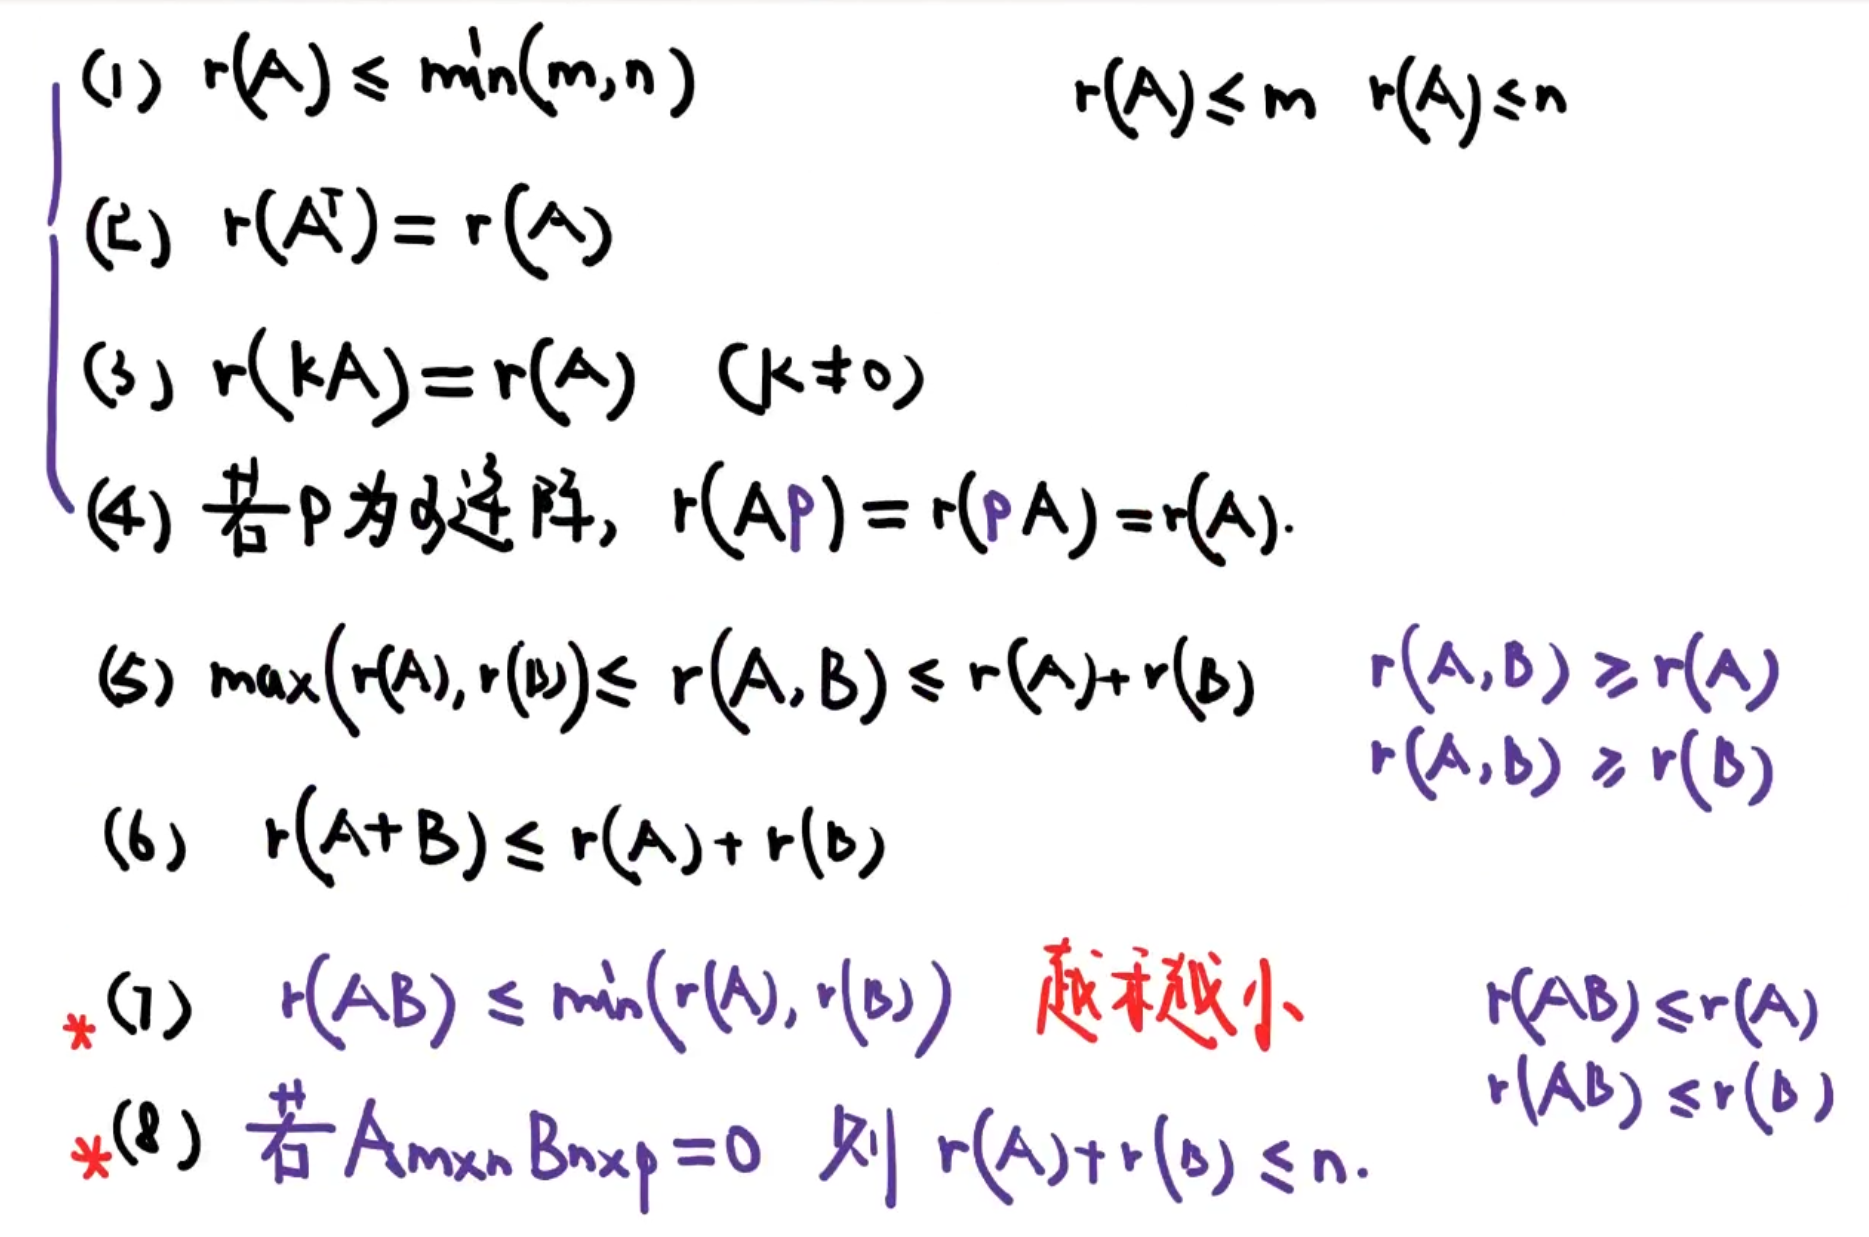 (1) r(A) ≤ min(m,n) r(A)≤m r(A)≤n
(2) r(Aᵀ)=r(A)
(3) r(kA)=r(A) (k≠0)
(4) 若P为可逆阵, r(AP)=r(PA)=r(A).
(5) max(r(A),r(B))≤ r(A,B) ≤ r(A)+r(B) r(A,B) ≥ r(A)
r(A,B) ≥ r(B)
(6) r(A+B) ≤ r(A)+r(B)
*(7) r(AB) ≤ min(r(A),r(B)) 越乘越小 r(AB)≤r(A)
r(AB)≤r(B)
*(8) 若 Aₘₓₙ Bₙₓₚ=0 则 r(A)+r(B) ≤ n.